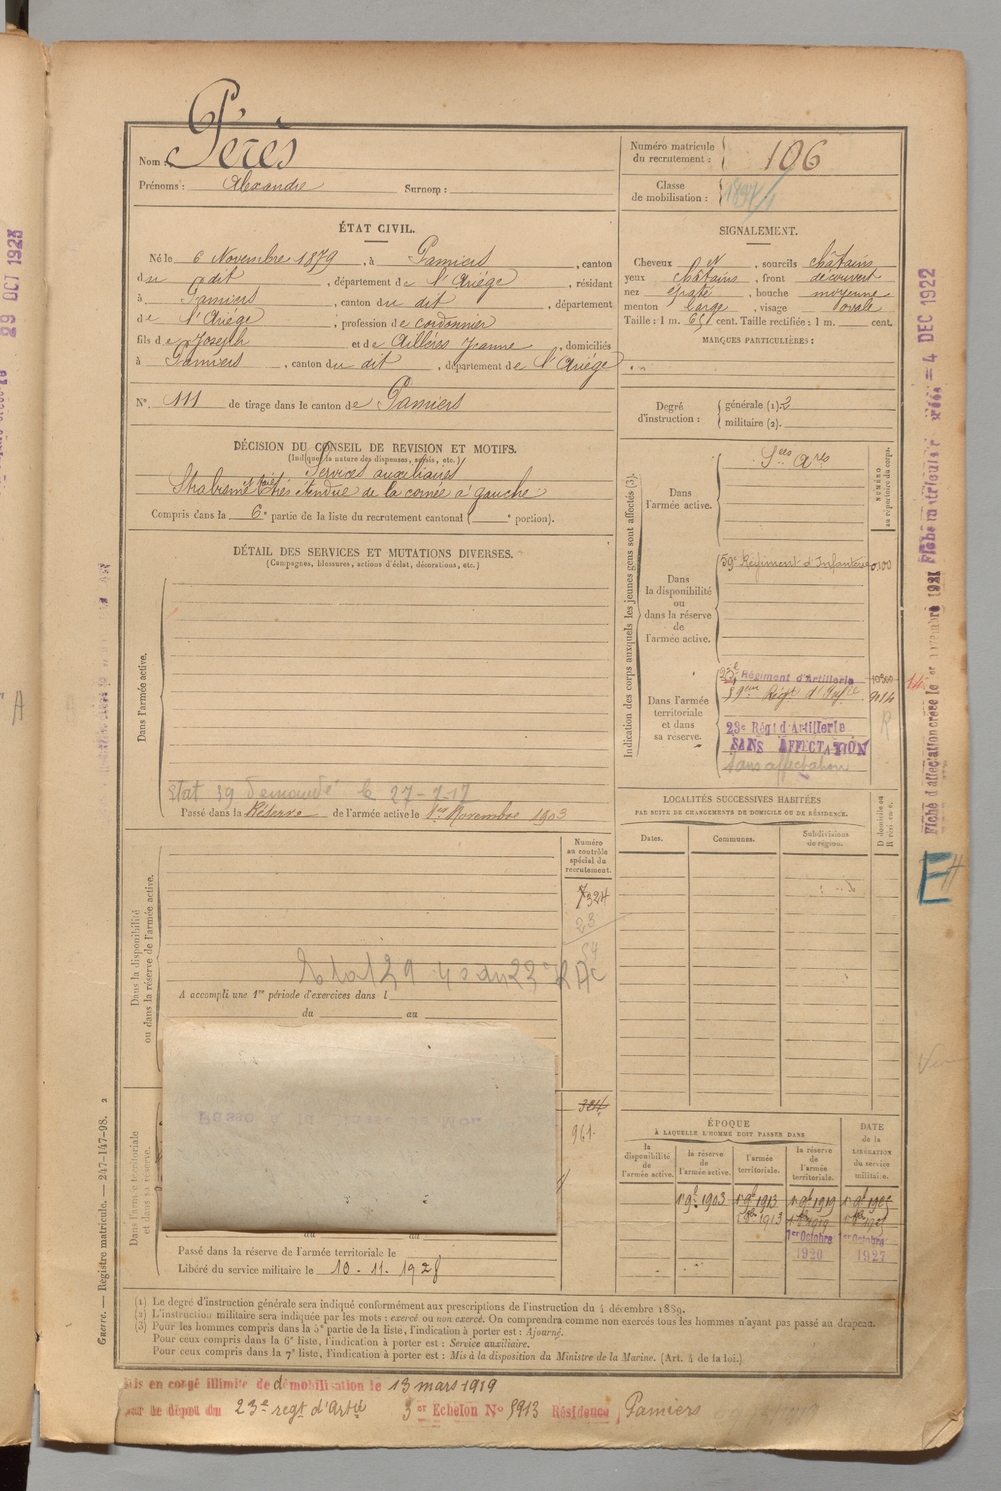 Nom : Perès
Prénoms : Alexandre Surnom :
Numéro matricule du recrutement : 106
Classe de mobilisation : 1897/1
ÉTAT CIVIL.
Né le 6 Novembre 1879, à Pamiers, canton
du dit, département de l'Ariége, résidant
à Pamiers, canton du dit, département
de l'Ariége, profession de cordonnier
fils de Joseph et de Aillères Jeanne, domiciliés
à Pamiers, canton du dit, département de l'Ariége
N° 111 de tirage dans le canton de Pamiers
SIGNALEMENT.
Cheveux et, sourcils châtains
yeux châtains, front découvert
nez épaté, bouche moyenne
menton large, visage ovale
Taille : 1 m. 651 cent. Taille rectifiée : 1 m. cent.
MARQUES PARTICULIÈRES :
Degré d'instruction : générale (1). 2
militaire (2).
DÉCISION DU CONSEIL DE REVISION ET MOTIFS.
(Indiquer la nature des dispenses, sursis, etc.)
Services auxiliaires
Strabisme et très étendue de la cornée à gauche
Compris dans la 6e partie de la liste du recrutement cantonal ( e portion).
DÉTAIL DES SERVICES ET MUTATIONS DIVERSES.
(Campagnes, blessures, actions d'éclat, décorations, etc.)
Dans l'armée active.
Etat 39 demandé le 27-7-17
Passé dans la Réserve de l'armée active le 1er Novembre 1903
Dans la disponibilité ou dans la réserve de l'armée active.
Numéro au contrôle spécial du recrutement.
7324
23
64
au 23e RAC
A accompli une 1re période d'exercices dans l
du au
Dans l'armée territoriale et dans sa réserve.
324
961
Passé dans la réserve de l'armée territoriale le
Libéré du service militaire le 10-11-1928
Indication des corps auxquels les jeunes gens sont affectés (3).
NUMÉRO au répertoire du corps.
Dans l'armée active.
Sces Ares
Dans la disponibilité ou dans la réserve de l'armée active.
59e Régiment d'Infanterie
Dans l'armée territoriale et dans sa réserve.
23e Régiment d'Artillerie
23e Régt d'Artillerie
SANS AFFECTATION
Sans affectation
LOCALITÉS SUCCESSIVES HABITÉES
PAR SUITE DE CHANGEMENTS DE DOMICILE OU DE RÉSIDENCE.
Dates. Communes. Subdivisions de région. D domicile ou R résidence.
ÉPOQUE
À LAQUELLE L'HOMME DOIT PASSER DANS
la disponibilité de l'armée active.
la réserve de l'armée active.
l'armée territoriale.
la réserve de l'armée territoriale.
DATE de la LIBÉRATION du service militaire.
1er 9bre 1903 1er 9bre 1913 1er 9bre 1919 1er 9bre 1925
1er Octobre 1920
1er Octobre 1927
(1) Le degré d'instruction générale sera indiqué conformément aux prescriptions de l'instruction du 4 décembre 1889.
(2) L'instruction militaire sera indiquée par les mots : exercé ou non exercé. On comprendra comme non exercés tous les hommes n'ayant pas passé au drapeau.
(3) Pour les hommes compris dans la 5e partie de la liste, l'indication à porter est : Ajourné.
Pour ceux compris dans la 6e liste, l'indication à porter est : Service auxiliaire.
Pour ceux compris dans la 7e liste, l'indication à porter est : Mis à la disposition du Ministre de la Marine. (Art. 4 de la loi.)
Mis en congé illimité de démobilisation le 13 mars 1919
par le dépôt du 23e regt d'Artie 3er Echelon N° 5913 Résidence Pamiers
Guerre. — Registre matricule. — 247-147-98. 2
29 OCT 1923
4 DEC 1922
Fiche matriculaire
Fiche d'affectation créée le 1er novembre 1921
14